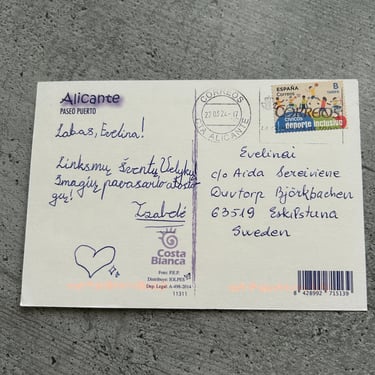 Alicante
PASEO PUERTO
Labas, Evelina!
Linksmų Šventų Velykų
Smagių pavasario atosto
gų!
Izabelė
Costa
Blanca
Foto: P.E.P.
Dep. Legal: A-498-2014
11311
CORREOS
27 03 24-17
CTA ALICANTE
ESPAÑA
Correos
B
CORREOS
valores
cívicos
deporte inclusivo
Evelinai
c/o Aida Sereiviene
Duvtorp Björkbacken
63519 Eskilstuna
Sweden
8 428992 715139